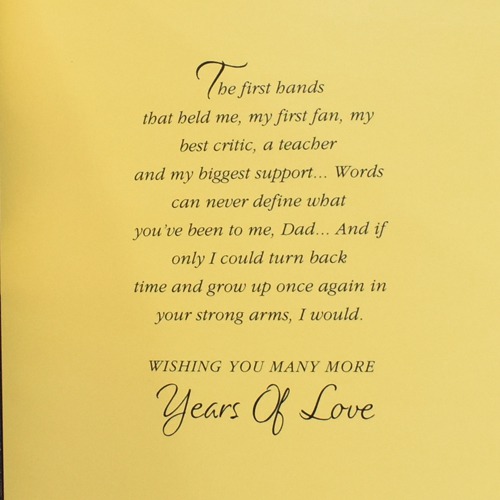 The first hands
that held me, my first fan, my
best critic, a teacher
and my biggest support... Words
can never define what
you've been to me, Dad... And if
only I could turn back
time and grow up once again in
your strong arms, I would.
WISHING YOU MANY MORE
Years Of Love